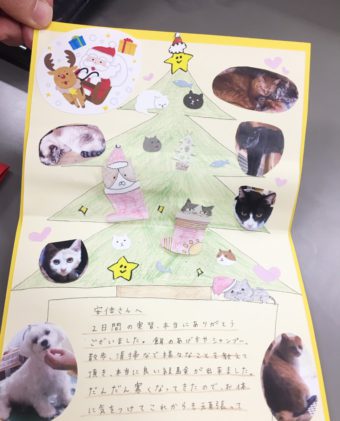 安倍さんへ
2日間の実習、本当にありがとう
ございました。餌のあげ方やシャンプー、
散歩、清掃など様々なことを教えて
頂き、本当に良い経験が出来ました。
だんだん寒くなってきたので、お体
に気をつけてこれからも頑張って